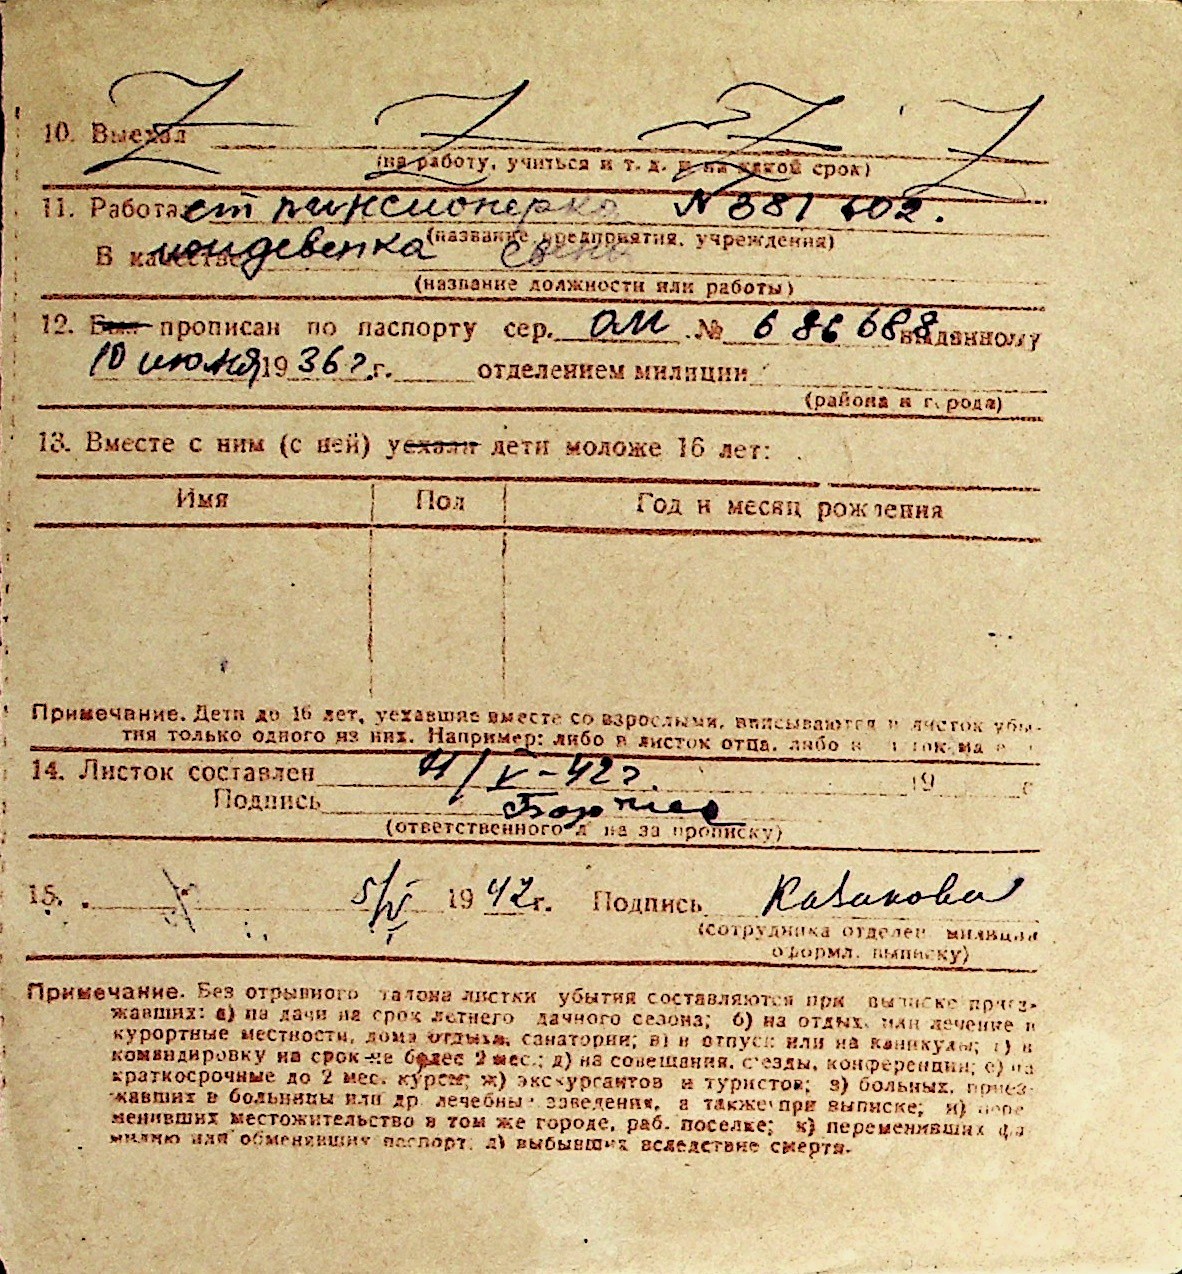 10. Выехал
(на работу, учиться и т. д. и на какой срок)
11. Работа ст пинсионерка N 381 602.
(название предприятия, учреждения)
В качестве иждевенка
(название должности или работы)
12. Был прописан по паспорту сер. ОЛИ № 686688 выданному
10 июня 1936 г. г. отделением милиции
(района и города)
13. Вместе с ним (с ней) уехали дети моложе 16 лет:
Имя Пол Год и месяц рождения
Примечание. Дети до 16 лет, уехавшие вместе со взрослыми, вписываются в листок убы-
тия только одного из них. Например: либо в листок отца, либо в
14. Листок составлен 4/V-42г. 19 г
Подпись
(ответственного за прописку)
15. 5/V 1942г. Подпись Казакова
(сотрудника отделен. милиции
оформл. выписку)
Примечание. Без отрывного талона листки убытия составляются при выписке приез-
жавших: а) на дачи на срок летнего дачного сезона; б) на отдых или лечение в
курортные местности, дома отдыха, санатории; в) в отпуск или на каникулы; г) в
командировку на срок не более 2 мес.; д) на совещания, с'езды, конференции; е) на
краткосрочные до 2 мес. курсы; ж) экскурсантов и туристов; з) больных, приез-
жавших в больницы или др. лечебны заведения, а также при выписке; и) пере
менивших местожительство в том же городе, раб. поселке; к) переменивших фа
милию или обменивших паспорт; л) выбывших вследствие смерти.